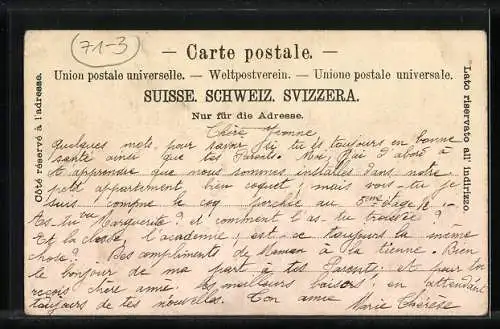 71-3
— Carte postale. —
Union postale universelle. — Weltpostverein. — Unione postale universale.
SUISSE. SCHWEIZ. SVIZZERA.
Nur für die Adresse.
Côté réservé à l'adresse.
Lato riservato all' indirizzo.
Chère Yvonne
Quelques mots pour savoir si tu es toujours en bonne
santé ainsi que tes Parents. Moi, j'ai d'abord à
t'apprendre que nous sommes installés dans notre
petit appartement bien coquet; mais vois-tu je
suis comme le coq perchée au 5eme étage.
As-tu vu Marguerite? et comment l'as-tu trouvée?
Et la classe, l'académie; est-ce toujours la même
chose? Des compliments de Maman à la tienne. Bien
le bonjour de ma part à tes Parents; et pour toi
reçois chère amie les meilleurs baisers; en attendant
toujours de tes nouvelles. Ton amie
Marie Thérèse